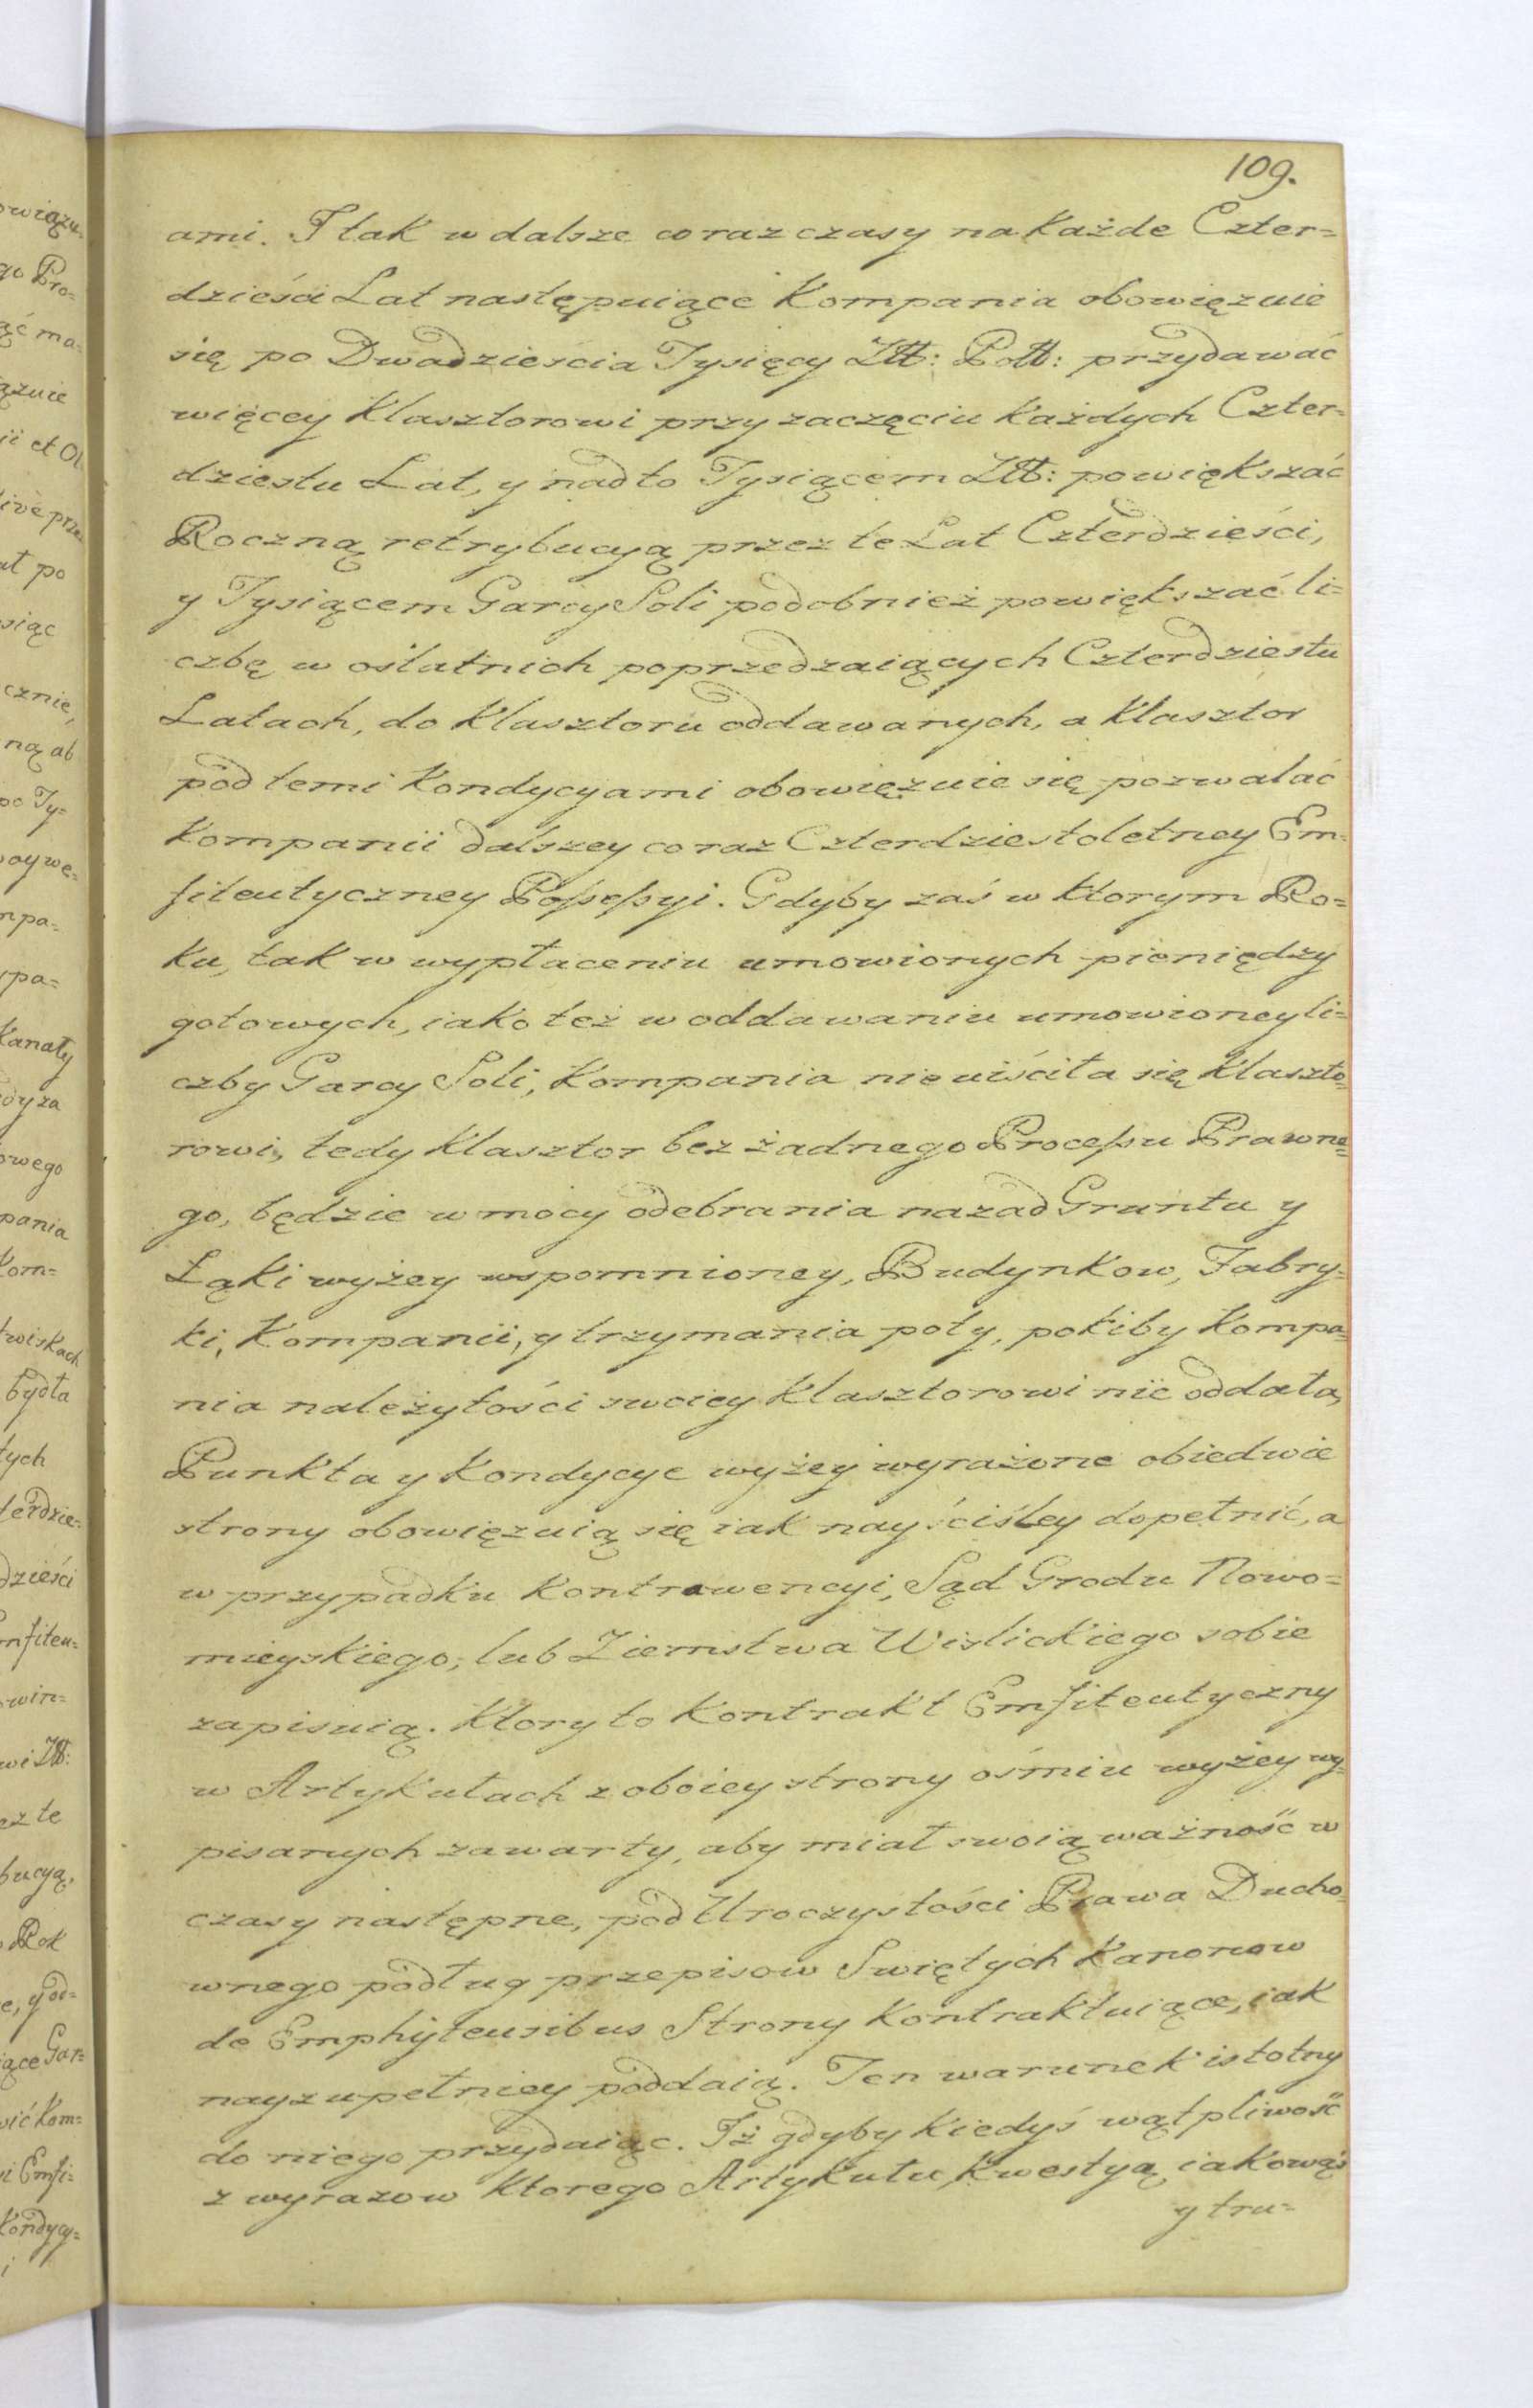 109.
ami. I tak w dalsze coraz czasy na każde Czter=
dzieści Lat następuiące Kompania obowięzuie
się po Dwadzieścia Tysięcy Złł: Poll: przydawać
więcey Klasztorowi przy zaczęciu każdych Czter=
dziestu Lat, y nadto Tysiącem Złł: powiększać
Roczną retrybucyą przez te Lat Czterdzieści,
y Tysiącem Garcy Soli podobnież powiększać li=
czbę w ostatnich poprzedzaiących Czterdziestu
Latach, do Klasztoru oddawanych, a Klasztor
pod temi Kondycyami obowięzuie się pozwalać
Kompanii dalszey coraz Czterdziestoletney Em=
fiteutyczney Possessyi. Gdyby zaś w ktorym Ro=
ku, tak w wypłaceniu umowionych pieniędzy
gotowych, iako też w oddawaniu umowioney li=
czby Garcy Soli, Kompania nie uiściła się Klaszto=
rowi, tedy Klasztor bez żadnego Processu Prawne=
go, będzie w mocy odebrania nazad Gruntu y
Łąki wyżey wspomnioney, Budynkow, Fabry=
ki, Kompanii, y trzymania poty, pokiby Kompa=
nia należytości swoiey Klasztorowi nie oddała,
Punkta y Kondycye wyżey wyrażone obiedwie
strony obowięzuią się iak nayściśley dopełnić, a
w przypadku Kontrawencyi, Sąd Grodu Nowo=
mieyskiego, lub Ziemstwa Wislickiego sobie
zapisuią. Ktory to Kontrakt Emfiteutyczny
w Artykułach z oboiey strony ośmiu wyżey wy=
pisanych zawarty, aby miał swoią ważność w
czasy następne, pod Uroczystości Prawa Ducho=
wnego podług przepisow Swiętych Kanonow
de Emphyteusibus Strony Kontraktuiące, iak
nayzupełniey poddaią. Ten warunek istotny
do niego przydaiąc. Iż gdyby kiedyś wątpliwość
z wyrazow ktorego Artykułu, kwestyą iakowąś
y tru=
owiązu=
go Pro=
ąć ma=
ązuie
ii et Ol
ive prze=
at po
siąc
cznie,
ną ab
po Ty=
oywe=
mpa=
pa=
Kanały
dyza
owego
pania
Kom=
twiskach
bydła
tych
terdzie=
dzieści
mfiteu=
win=
wi Złł:
ez te
bucyą,
Rok
e, y od=
iące Gar=
wić Kom=
i Emfi=
Kondycy=
i